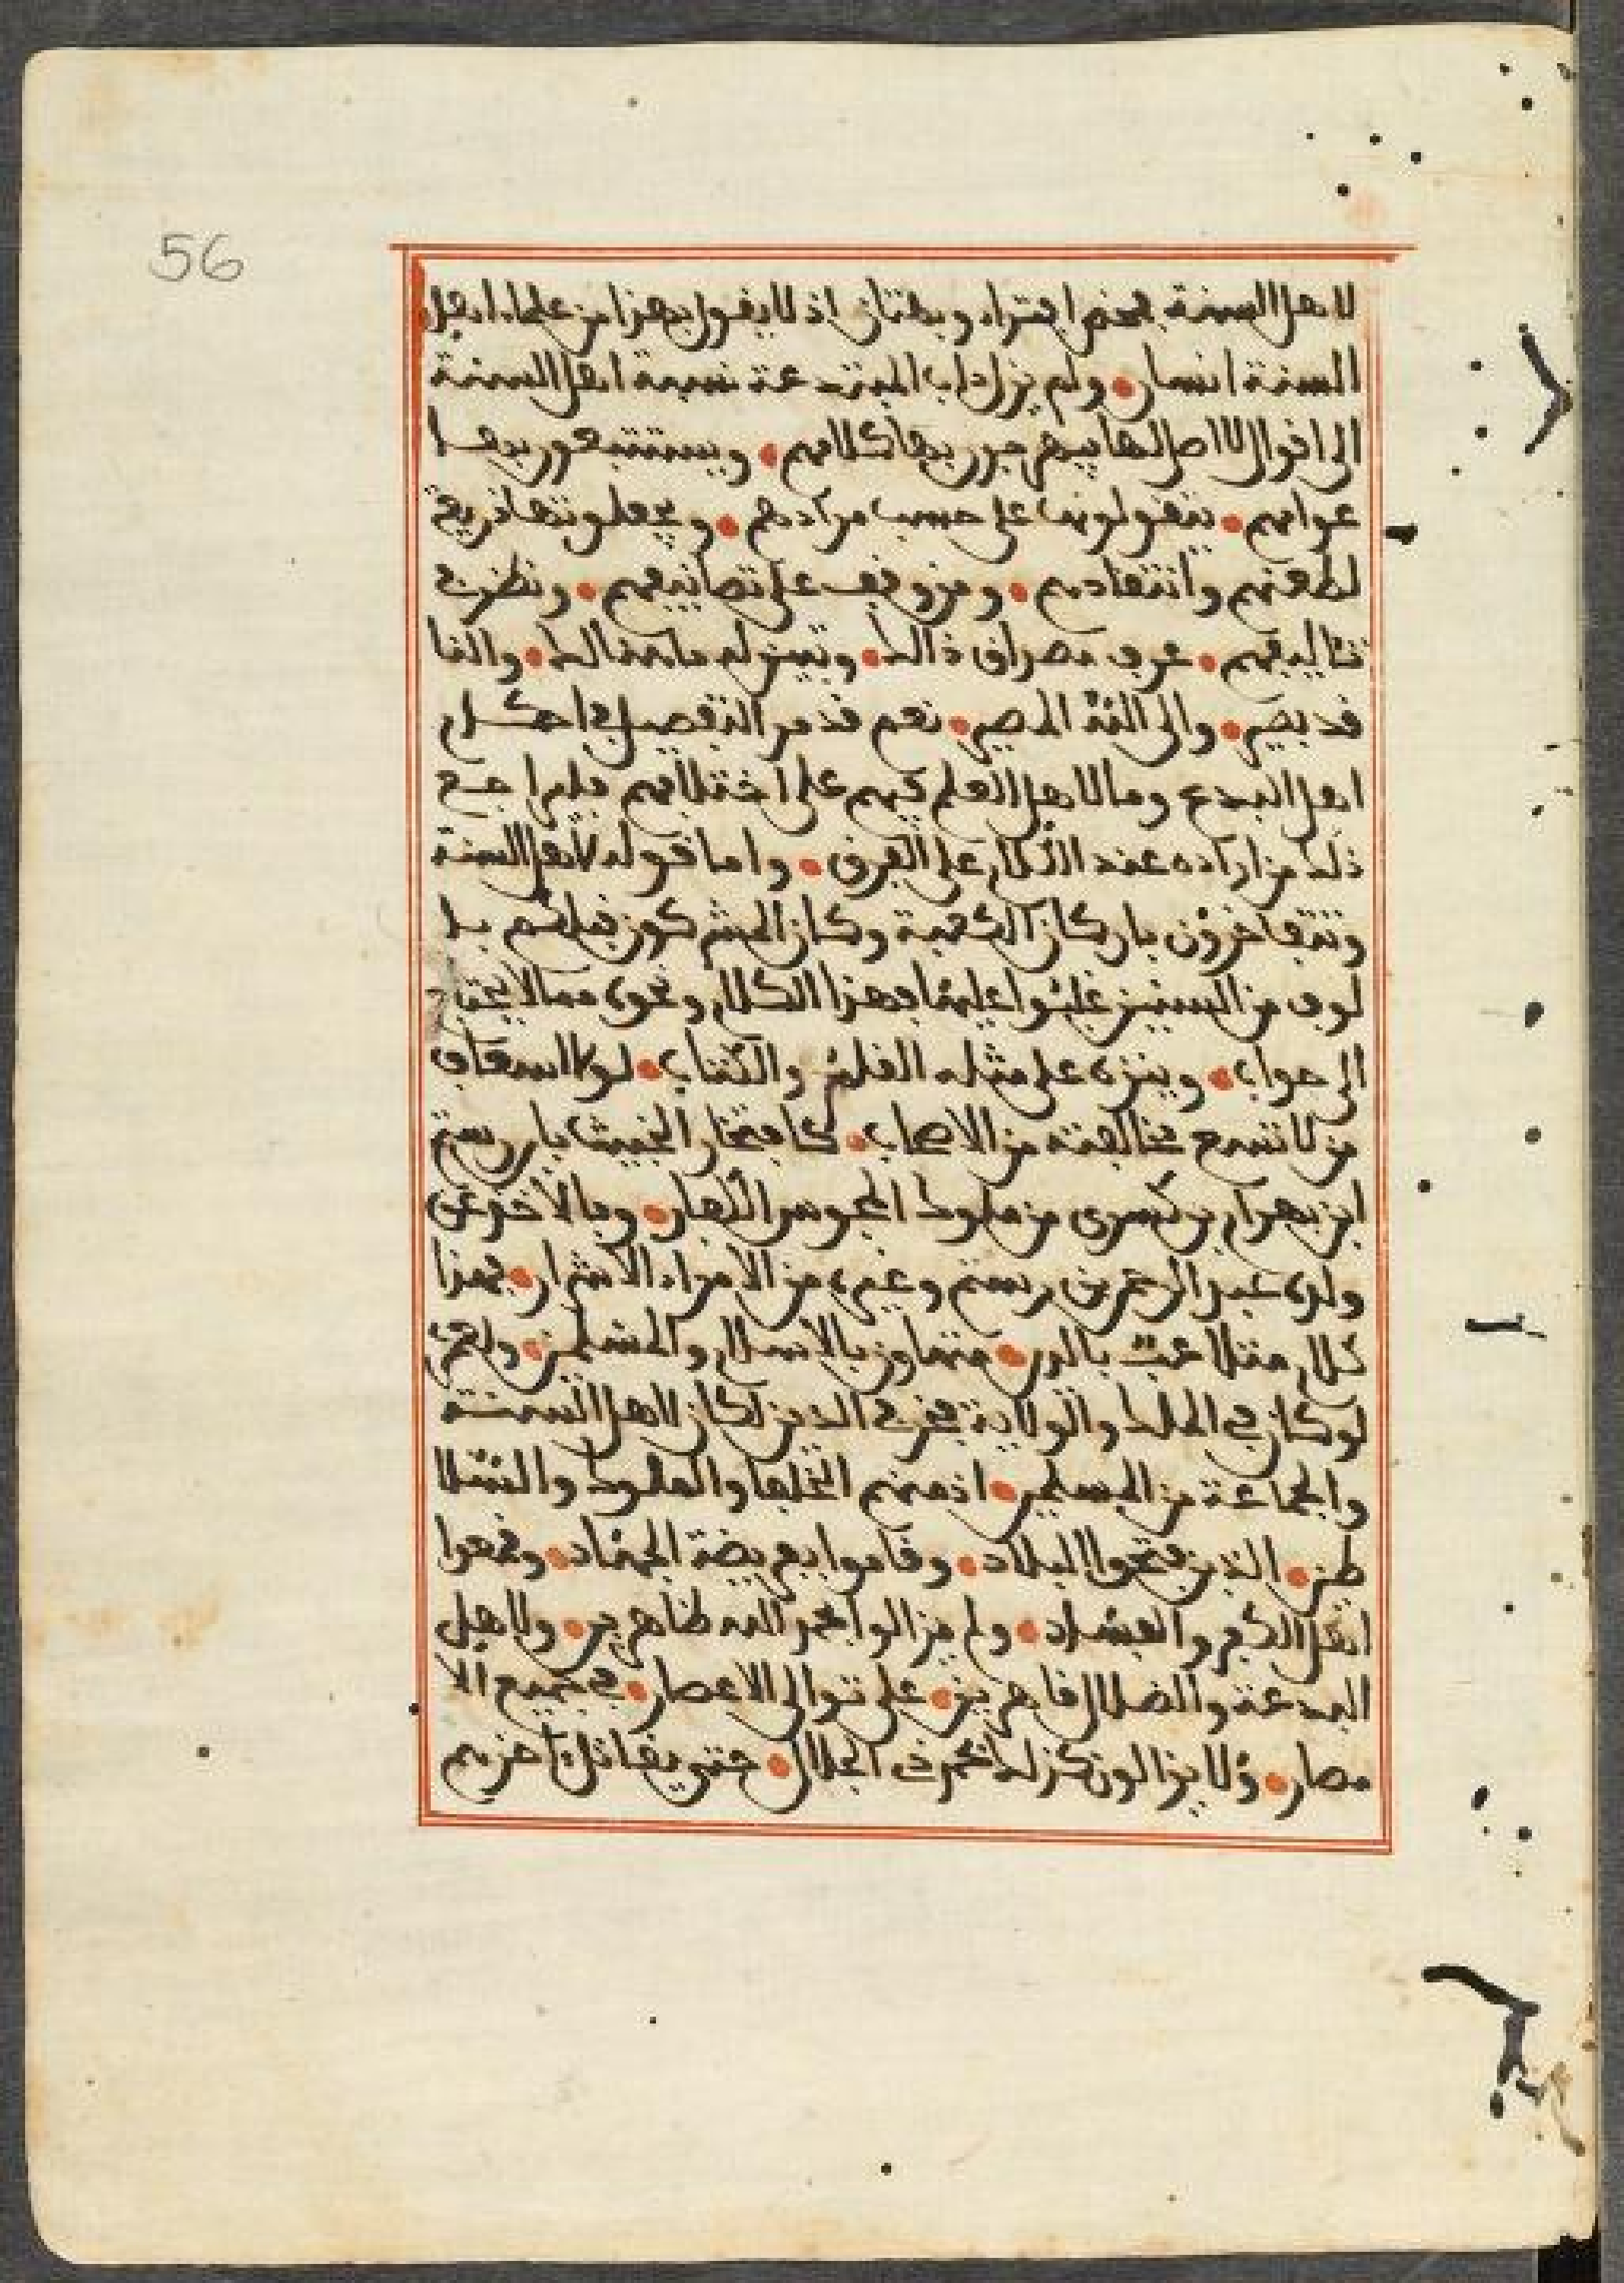 56
لاهل السنة محض افتراء وبهتان اذ لا يقول بهذا من علماء اهل
السنة انسان • ولم يزل داب المبتدعة نسبة اهل السنة
الى اقوال لا اصل لها يبهرجون بها كلامهم • ويستتبعون بها
عوامهم • يتقولونها على حسب مرادهم • ويجعلونها ذريعة
لطعنهم وانتقادهم • ومن وقف على تصانيفهم • ونظر في
تئاليفهم • عرف مصداق ذالك • وتبين له ما هنالك • والنا
قد بصير • والى الله المصير • نعم قد مر التفصيل في احكام
اهل البدع وما لاهل العلم فيهم على اختلافهم فليراجع
ذلك من اراده عند الكلام على الفرق • واما قوله لاهل السنة
وتتفاخرون باركان الكعبة وكان المشركون قبلكم بها
لوف من السنيين غلبوا عليها فهذا الكلام ونحوه مما لا يحتاج
الى جواب • وينزه على مثله القلم والكتاب • لولا اسعاف
من لا تسع مخالفته من الاصحاب • كافتخار الخبيث بابن رستم
ابن بهرام بن كسرى من ملوك المجوس الكفار • وبالاخذ عن
ولده عبد الرحمن بن رستم وغيره من الامراء الاشرار • فهذا
كلام متلاعب بالدين • متهاون بالاسلام والمسلمين • ولعمري
لو كان في الملك والولاية فخر في الدين لكان لاهل السنة
والجماعة من المسلمين • اذ منهم الخلفا والملوك والسلا
طين • الذين فتحوا البلاد • وقاموا بفريضة الجهاد • وقمعوا
اهل الكفر والفساد • ولم يزالوا بحمد الله ظاهرين • ولاهل
البدعة والضلال قاهرين • على توالي الاعصار • في جميع الا
مصار • ولا يزالون كذلك بحمد ذي الجلال • حتى يقاتل ءاخرهم